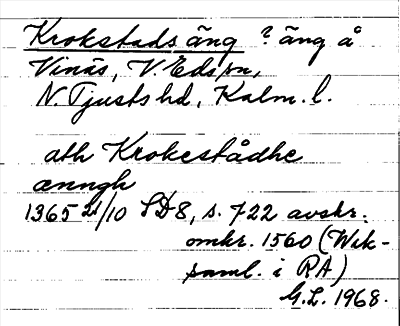 Krokstads äng ? äng å
Vinäs, V. Eds sn,
N. Tjusts hd, Kalm. l.
ath Krokestådhe
ænngh
1365 21/10 SD 8, s. 722 avskr.
omkr. 1560 (Wik-
saml. i RA)
G.L. 1968.